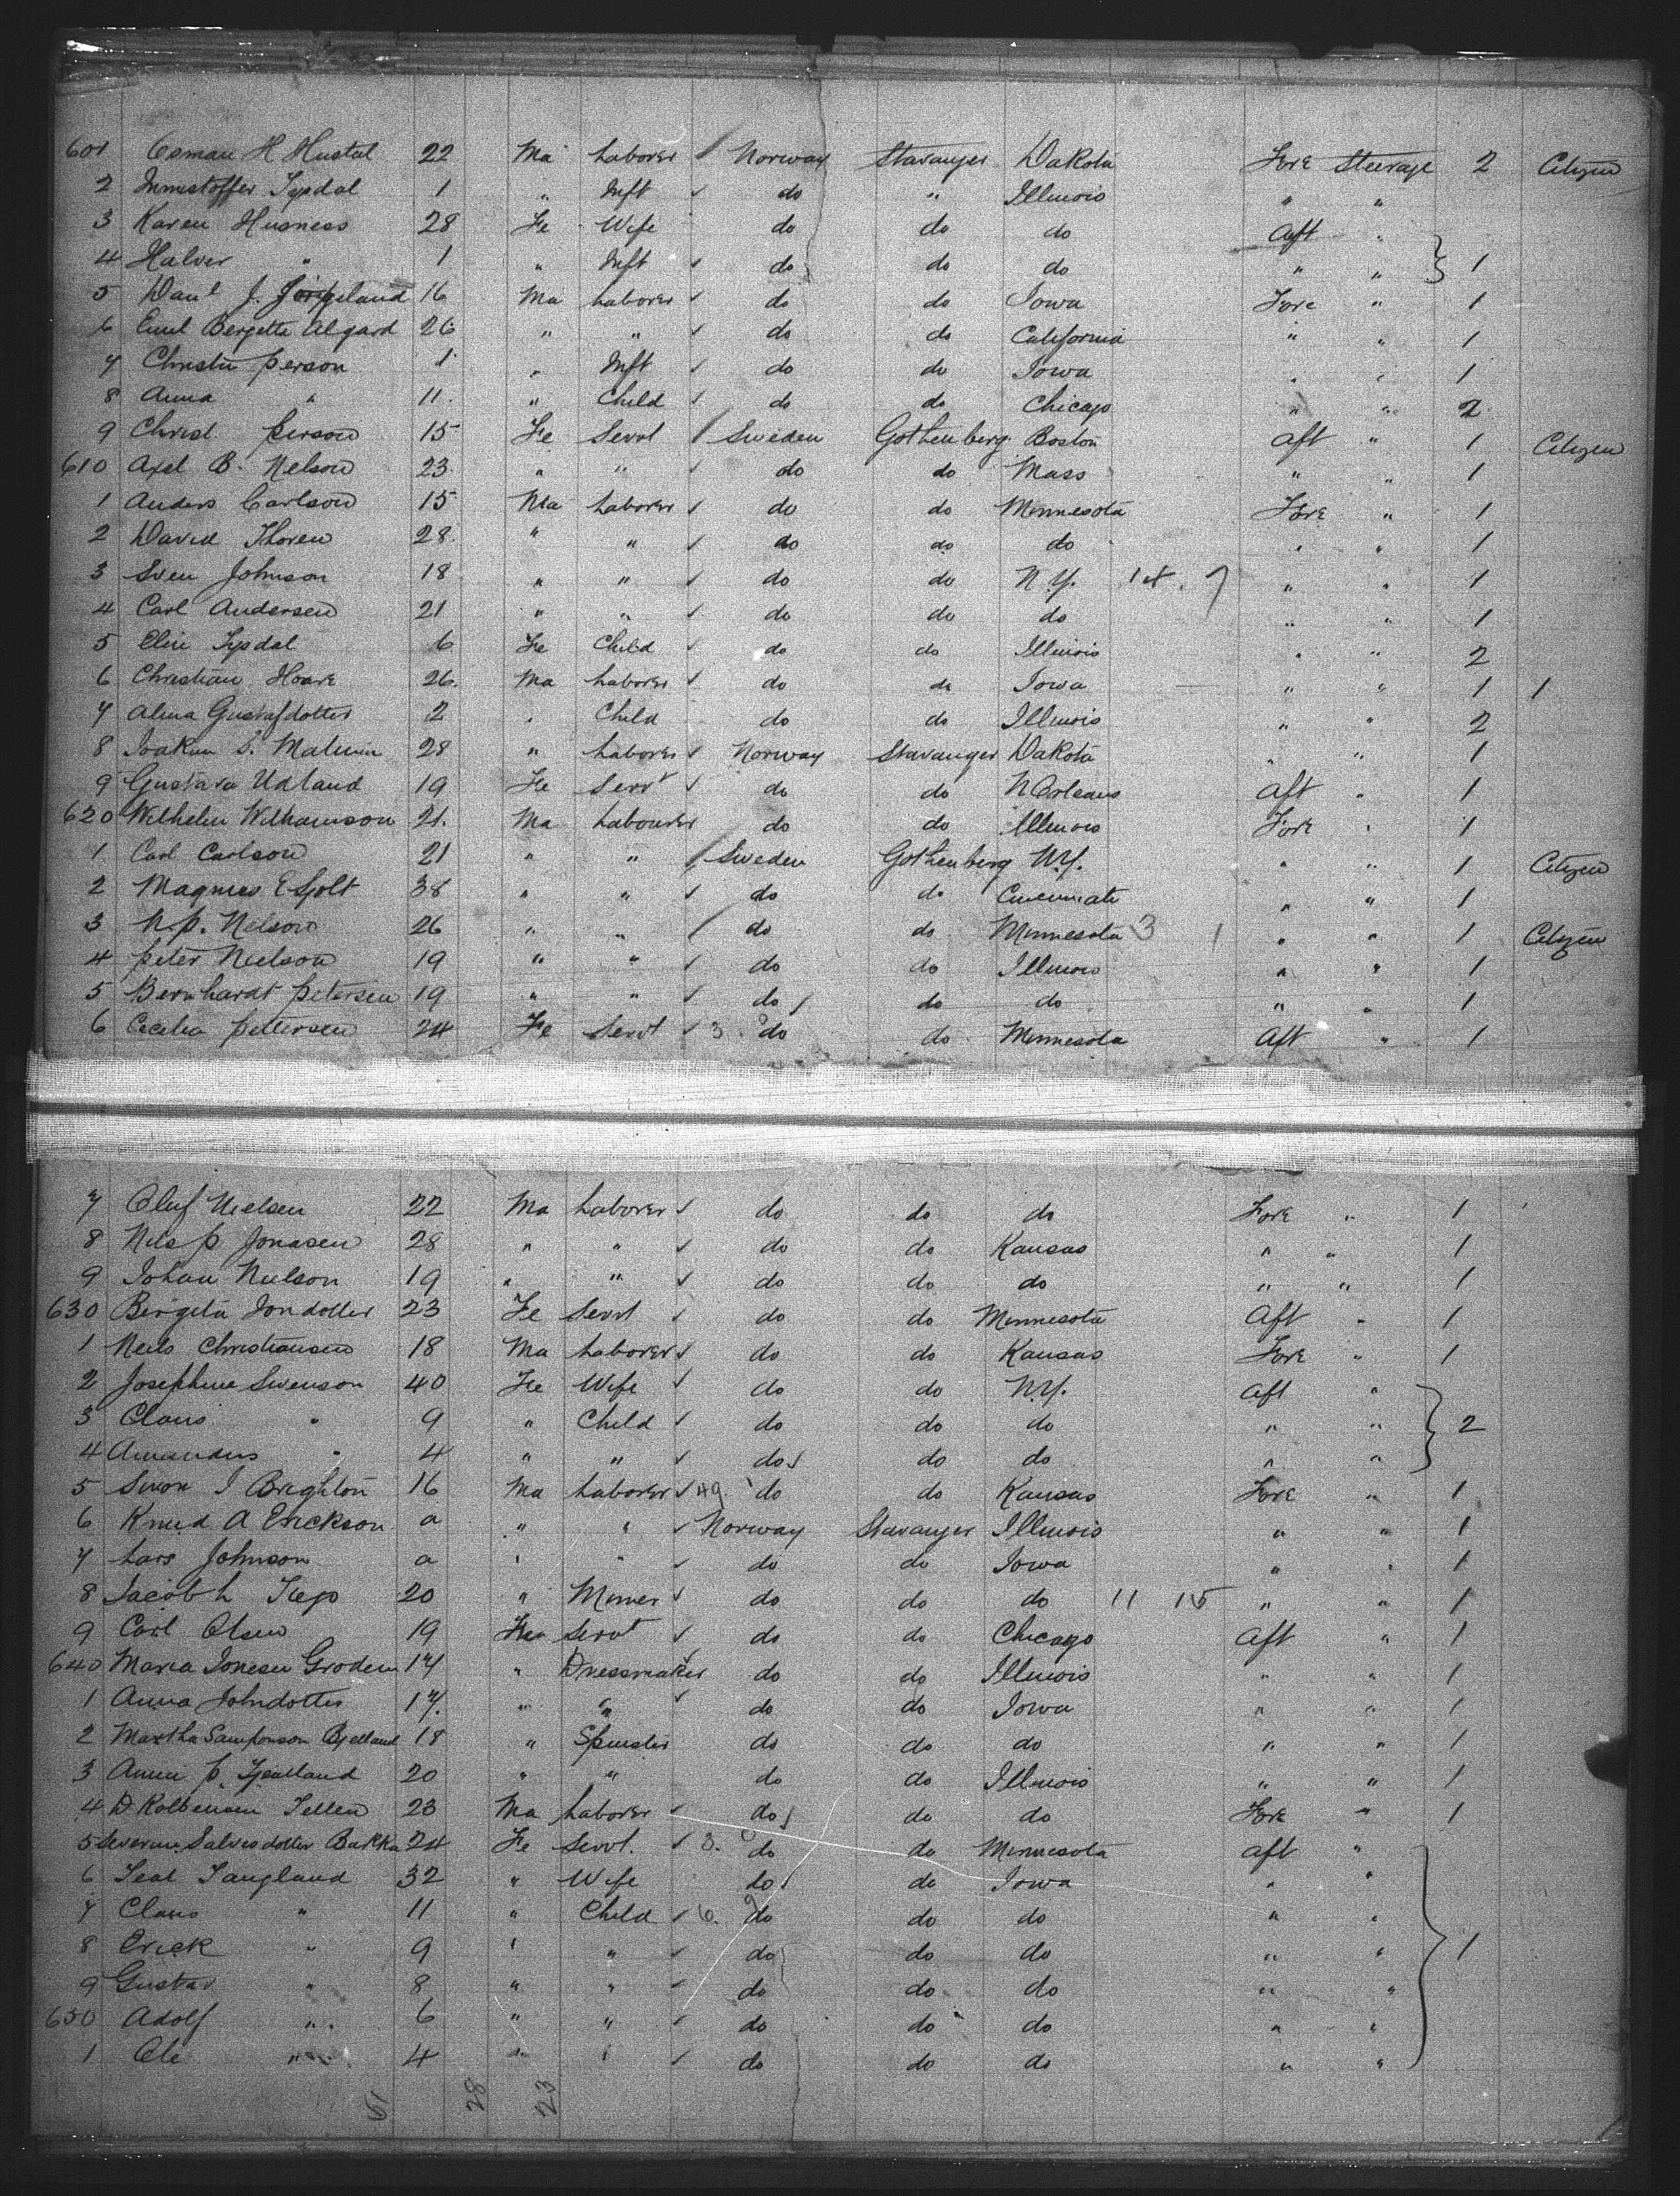 601 Osman H Hustal 22 Ma Laborer / Norway Stavanger Dakota Fore Steerage 2 Citizen
2 Typdal 1 " Inft ✓ do " Illinois " "
3 Karen Husness 28 Fe Wife do do do Aft "
4 Halver " 1 " Inft ✓ do do do " " } 1
5 Danl J. 16 Ma Laborer ✓ do do Iowa Fore " 1
6 Emil Bergette Algard 26 " " ✓ do do California " " 1
7 Christn Person 1 " Inft ✓ do do Iowa " " 1
8 Anna " 11 " Child ✓ do do Chicago " " 2
9 Christ. Person 15 Fe Servt / Sweden Gothenberg Boston Aft " 1 Citizen
610 Axel B. Nelson 23 " " do do Mass " " 1
1 Anders Carlson 15 Ma Laborer ✓ do do Minnesota Fore " 1
2 David Thoren 28 " " ✓ do do do " " 1
3 Sven Johnson 18 " " ✓ do do N.Y. 14. 7 " " 1
4 Carl Andersen 21 " " ✓ do do do " " 1
5 Elin Typdal 6 Fe Child ✓ do do Illinois " " 2
6 Christian Hoare 26 Ma Laborer ✓ do do Iowa " " 1 1
7 Alma Gustafdotter 2 " Child do do Illinois " " 2
8 Joakim S. 28 " Laborer ✓ Norway Stavanger Dakota " " 1
9 Gustava Udland 19 Fe Servt do do N Orleans Aft " 1
620 Wilhelm Williamson 21. Ma Labourer do do Illinois Fore " 1
1 Carl Carlson 21 " " / Sweden Gothenberg N.Y. " " 1 Citizen
2 Magnus 38 " " ✓ do do Cincinnati " " 1
3 N.P. Nelson 26 " " / do do Minnesota 3 1 " " 1 Citizen
4 Peter Nielson 19 " " ✓ do do Illinois " " 1
5 Bernhardt Petersen 19 " " ✓ do do do " " 1
6 Cecelia Pettersen 24 Fe Servt ✓ 3 do do Minnesota Aft " 1
7 Oluf Nielsen 22 Ma Laborer ✓ do do do Fore " 1
8 Nils P Jonasen 28 " " ✓ do do Kansas " " 1
9 Johan Neilson 19 " " ✓ do do do " " 1
630 Birgeta Jondotter 23 Fe Servt ✓ do do Minnesota Aft " 1
1 Neils Christiansen 18 Ma Laborer ✓ do do Kansas Fore " 1
2 Josephine Swenson 40 Fe Wife ✓ do do N.Y. Aft "
3 Claus " 9 " Child ✓ do do do " " } 2
4 Amandus " 4 " " ✓ do do do " "
5 Simon J Brighton 16 Ma Laborer ✓ 49 do do Kansas Fore " 1
6 Knud A Erickson a " " ✓ Norway Stavanger Illinois " " 1
7 Lars Johnson a " " ✓ do do Iowa " " 1
8 Jacob L 20 " Miner ✓ do do do 11 15 " " 1
9 Carl Olsen 19 Servt ✓ do do Chicago Aft " 1
640 Maria Jonesen Grodem 17 " Dressmaker do do Illinois " " 1
1 Anna Johndotter 17. " " ✓ do do Iowa " " 1
2 Martha Samponson Bjelland 18 " Spinster do do do " " 1
3 Annie P. 20 " " do do Illinois " " 1
4 D Kolbensen 23 Ma Laborer ✓ do do do Fore " 1
5 Severine Salvesdotter Bakka 24 Fe Servt. ✓ 3. do do Minnesota Aft "
6 Teal Tangland 32 " Wife do do Iowa " "
7 Claus " 11 " Child ✓ 6. 9 do do do " "
8 Erick " 9 " " ✓ do do do " " } 1
9 Gustav " 8 " " ✓ do do do " "
650 Adolf " 6 " " ✓ do do do " "
1 Ole " 4 " " ✓ do do do " "
51 28 23